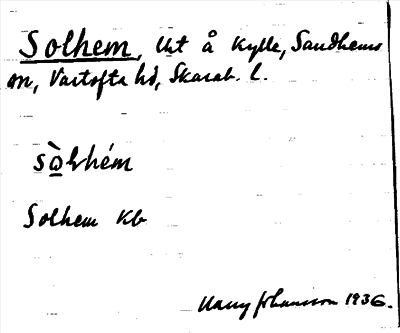 Solhem, lht å Kylle, Sandhems
sn, Vartofta hd, Skarab. l.
sò̲lhém
Solhem Kb
Harry Johansson 1936.